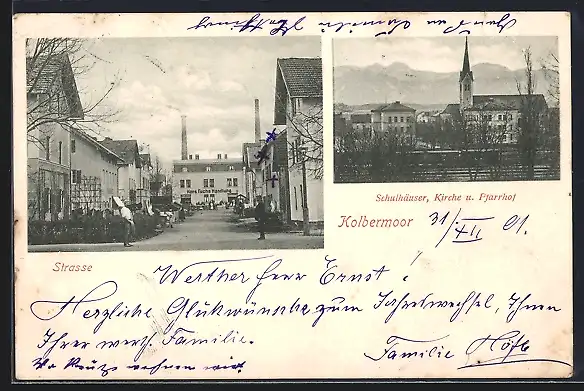 Hans Fuchs Handlung
Schulhäuser, Kirche u. Pfarrhof
Kolbermoor 31/XII 01.
Strasse
Werther Herr Ernst!
Herzliche Glückwünsche zum Jahreswechsel, Ihnen
Ihrer werth. Familie.
Familie Höfle
Wo Kreutz wohnen wir